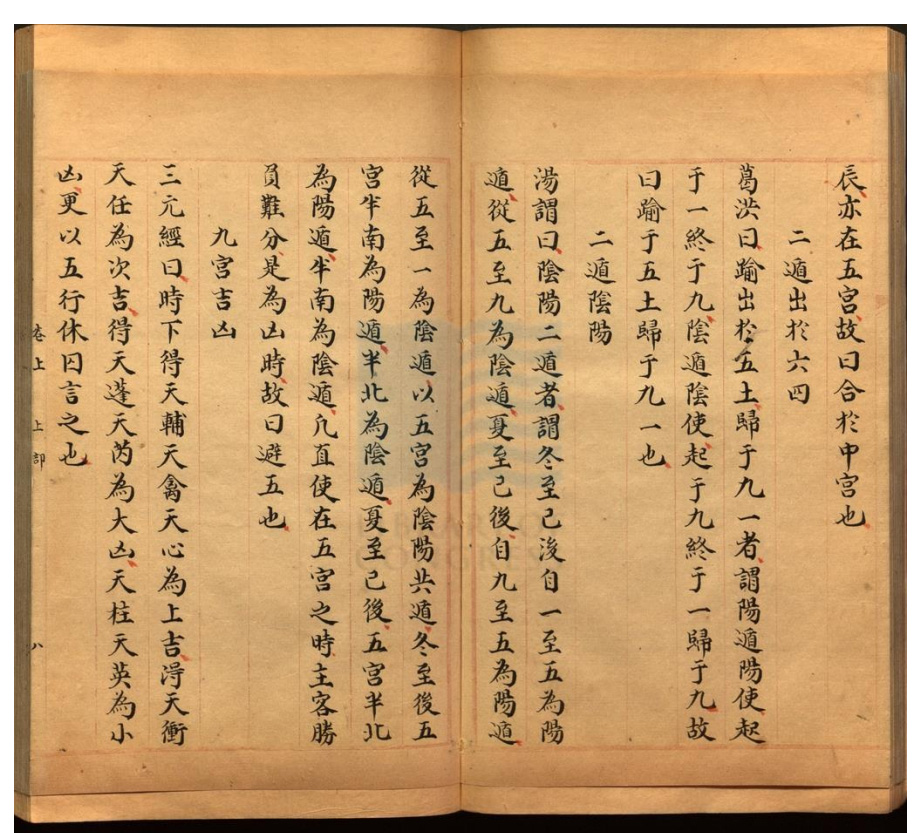 辰亦在五宮故曰合於中宮也
二遁出於六四
葛洪曰踰出於五土歸于九一者謂陽遁陽使起
于一終于九陰遁陰使起于九終于一歸于九故
曰踰于五土歸于九一也
二遁陰陽
湯謂曰陰陽二遁者謂冬至已後自一至五為陽
遁從五至九為陰遁夏至已後自九至五為陽遁
從五至一為陰遁以五宮為陰陽共遁冬至後五
宮半南為陽遁半北為陰遁夏至已後五宮半北
為陽遁半南為陰遁凡直使在五宮之時主客勝
負難分是為凶時故曰避五也
九宮吉凶
三元經曰時下得天輔天禽天心為上吉得天衝
天任為次吉得天蓬天芮為大凶天柱天英為小
凶更以五行休囚言之也
卷上 上部 八